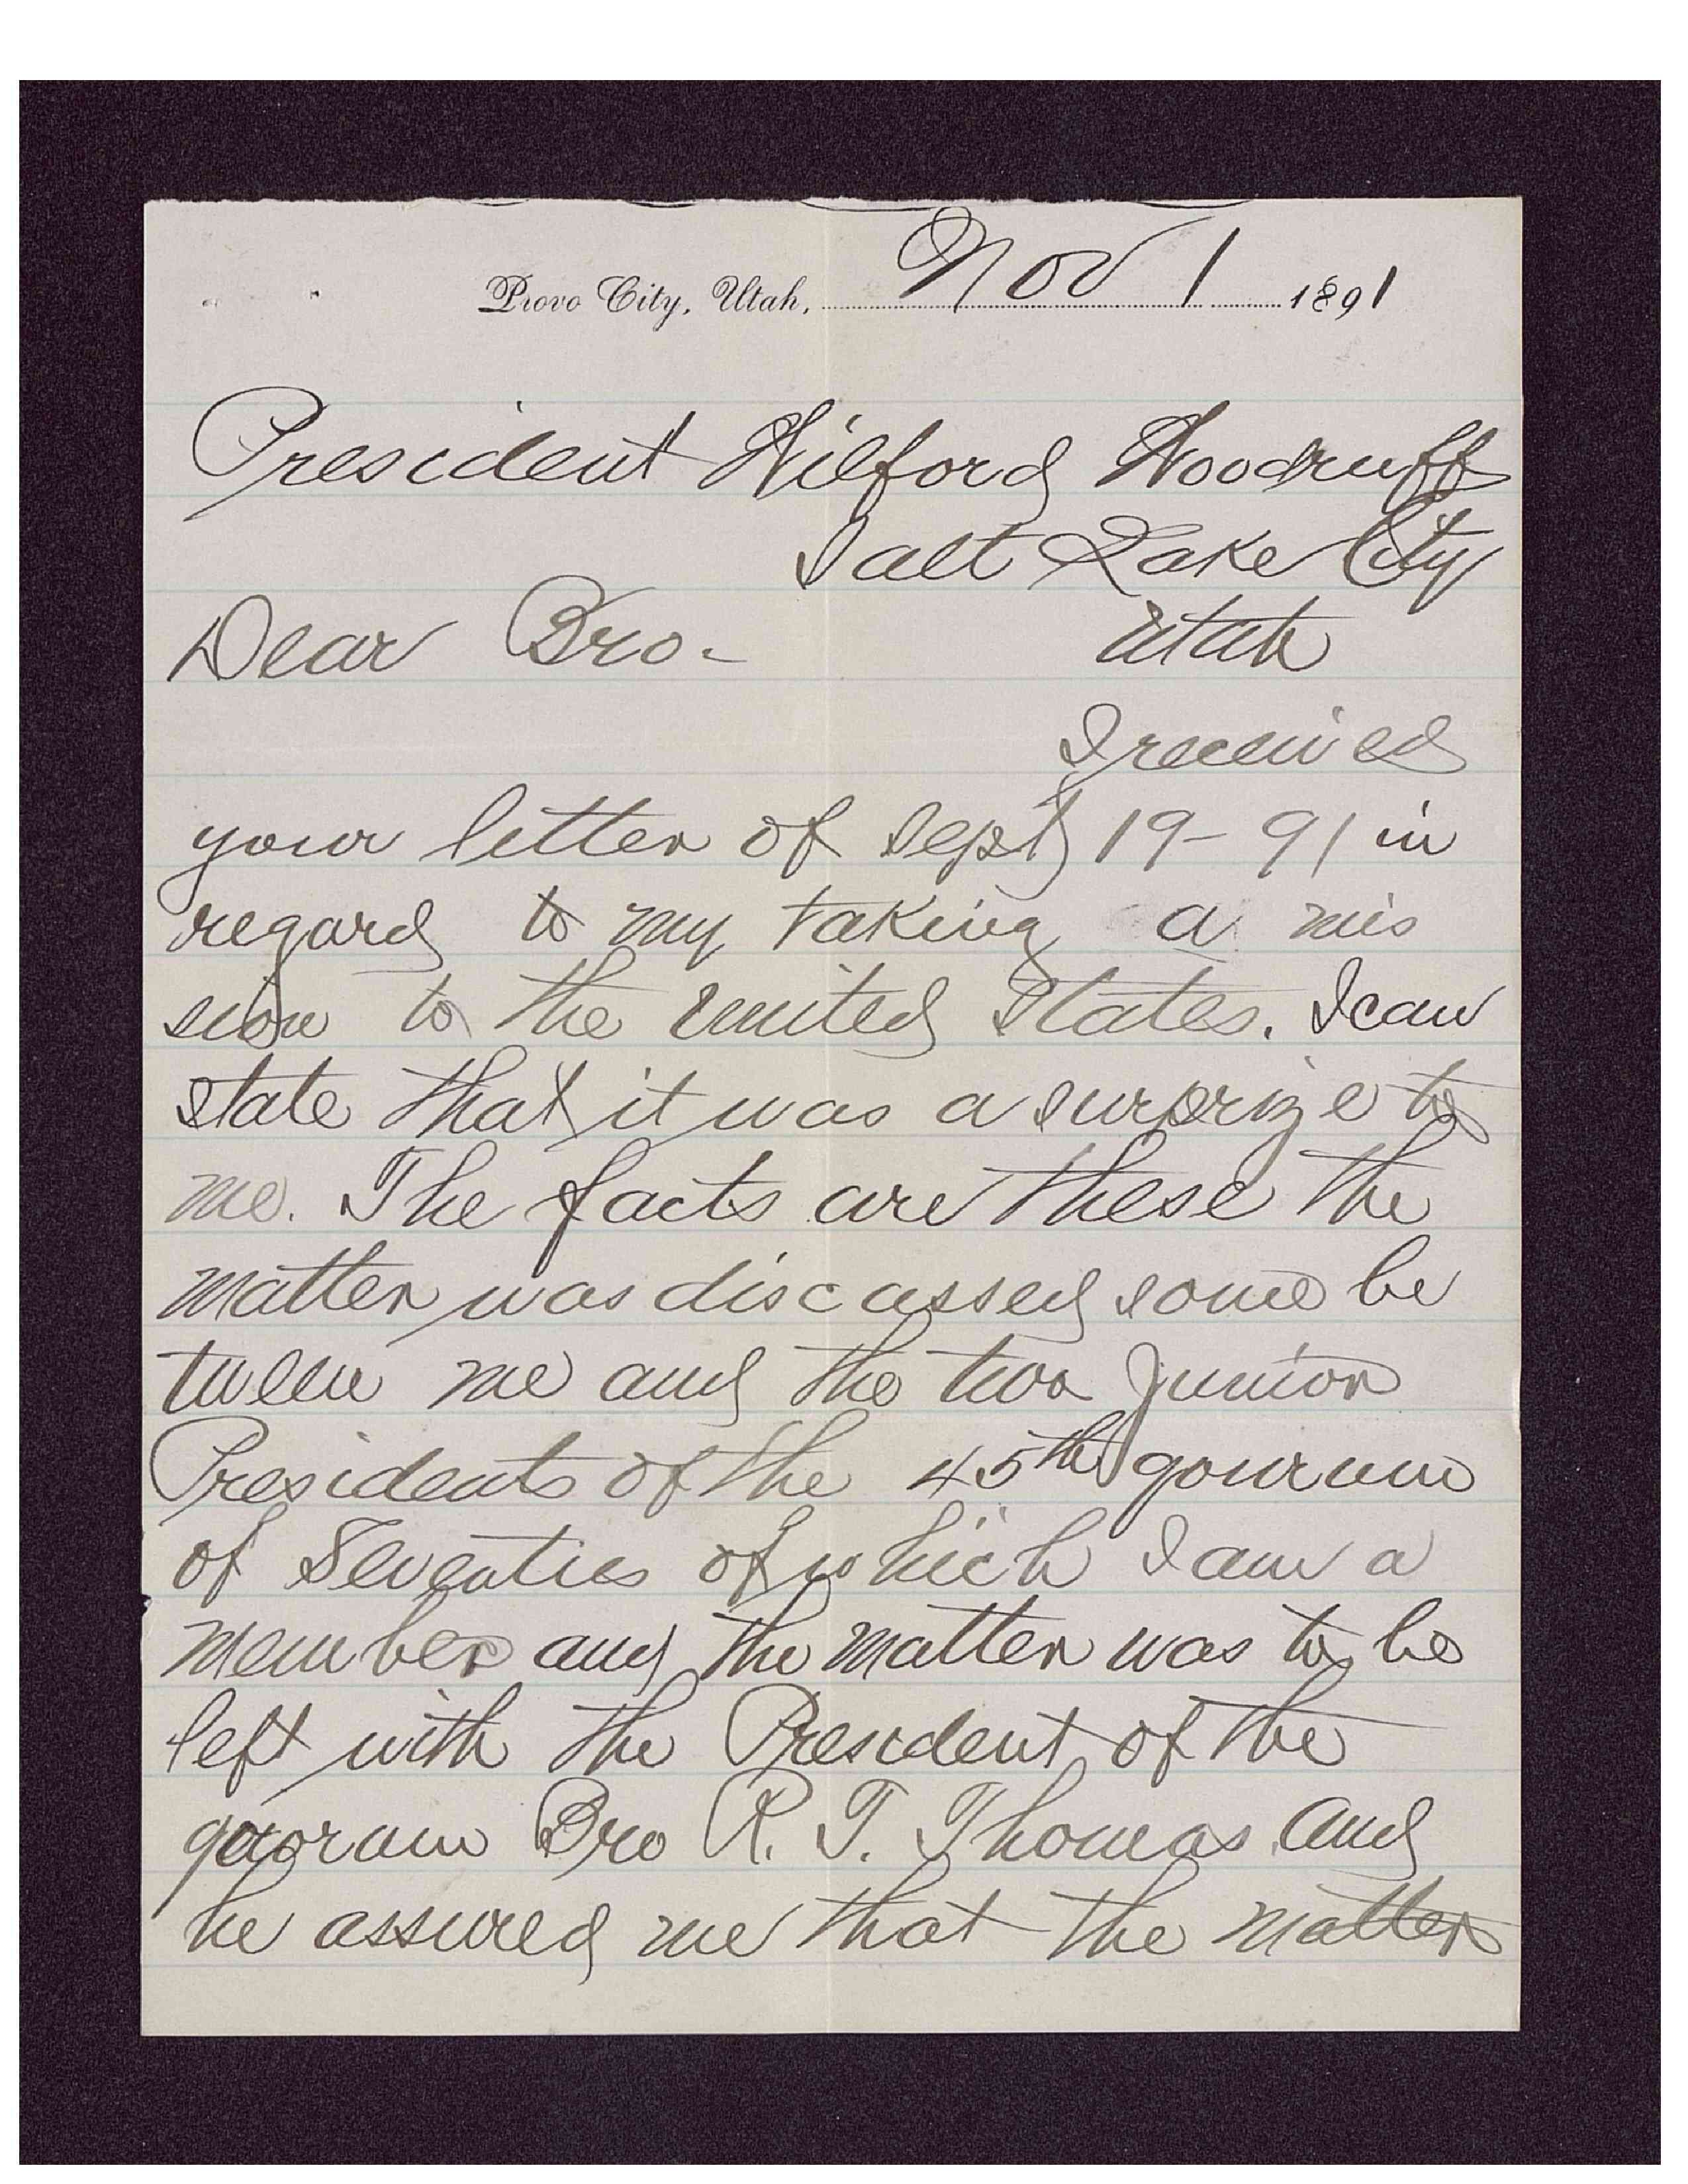 Provo City, Utah, Nov 1 1891
President Wilford Woodruff
Salt Lake City
Dear Bro- Utah
I received
your letter of Sept 19-91 in
regard to my taking a mis
sion to the United States. I can
state that it was a surprize to
me. The facts are these the
matter was discussed some be
tween me and the two Junior
Presidents of the 45th qourum
of Seventies of which I am a
member and the matter was to be
left with the President of the
quorum Bro R. T. Thomas and
he assured me that the matter